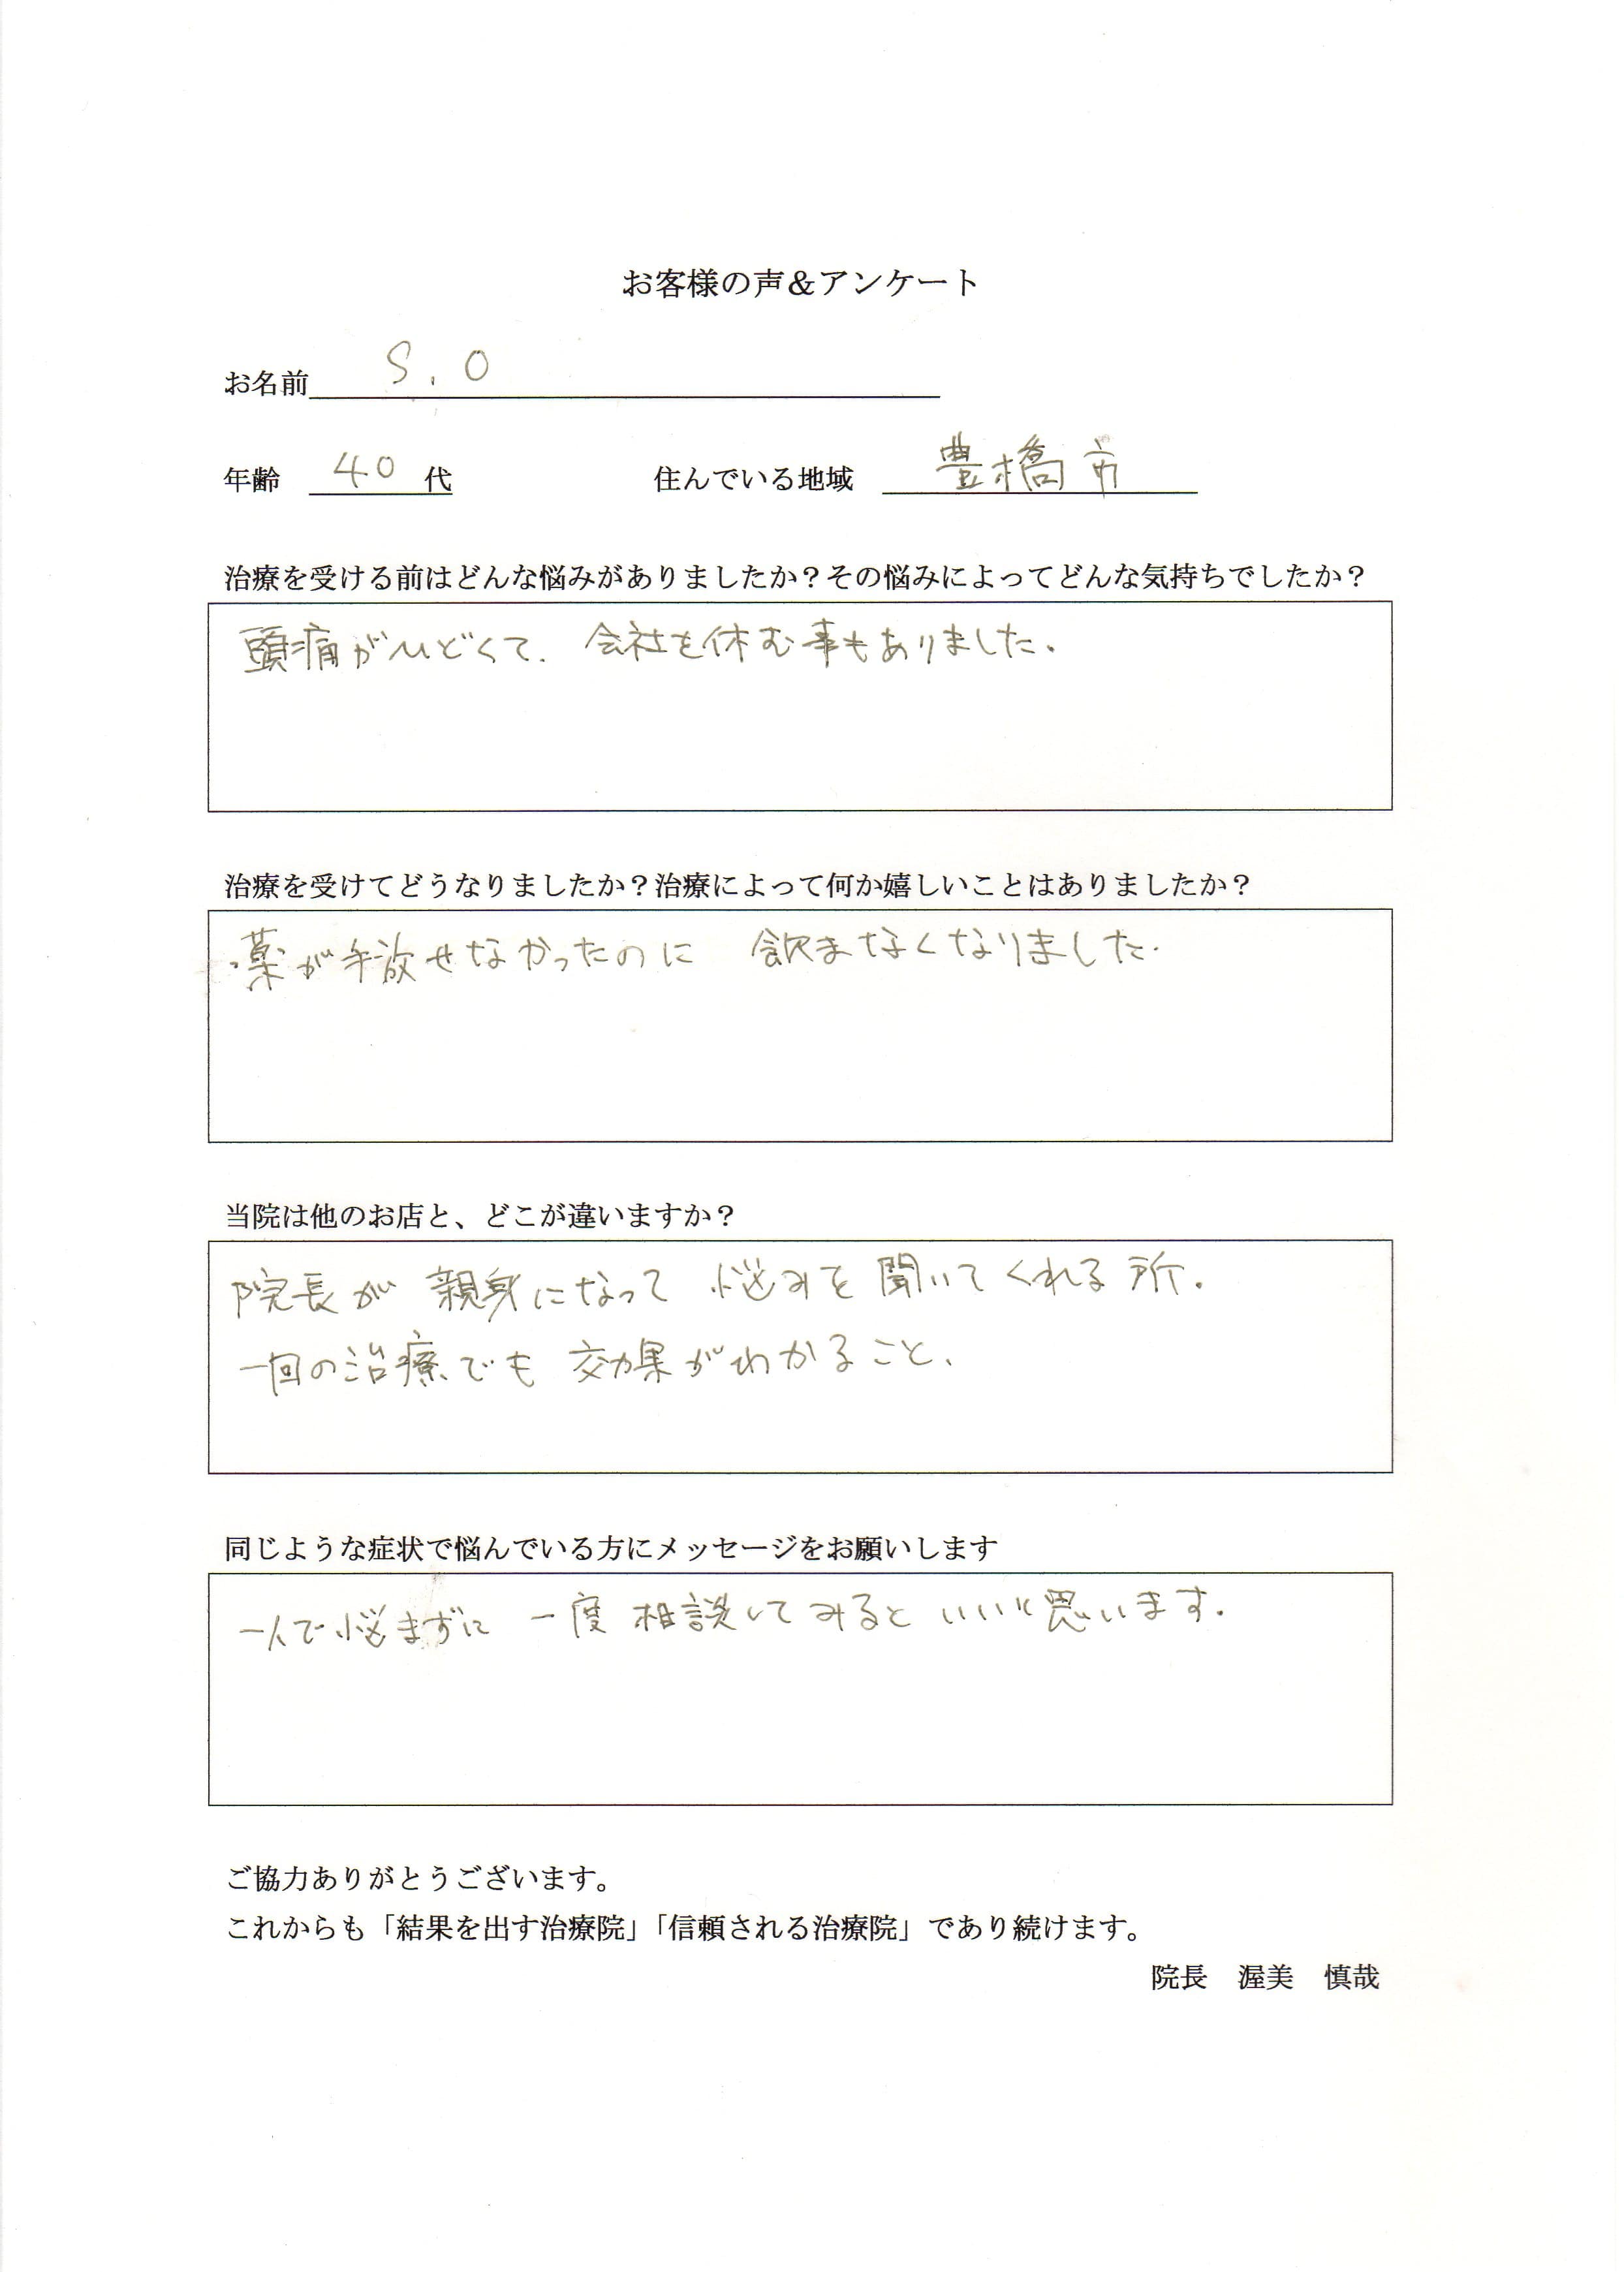 お客様の声＆アンケート
お名前 S.O
年齢 40 代 住んでいる地域 豊橋市
治療を受ける前はどんな悩みがありましたか？その悩みによってどんな気持ちでしたか？
頭痛がひどくて、会社を休む事もありました。
治療を受けてどうなりましたか？治療によって何か嬉しいことはありましたか？
薬が手放せなかったのに 飲まなくなりました。
当院は他のお店と、どこが違いますか？
院長が 親身になって 悩みを 聞いてくれる所。
一回の治療でも 効果がわかること、
同じような症状で悩んでいる方にメッセージをお願いします
一人で悩まずに 一度 相談してみると いいと思います。
ご協力ありがとうございます。
これからも「結果を出す治療院」「信頼される治療院」であり続けます。
院長 渥美 慎哉